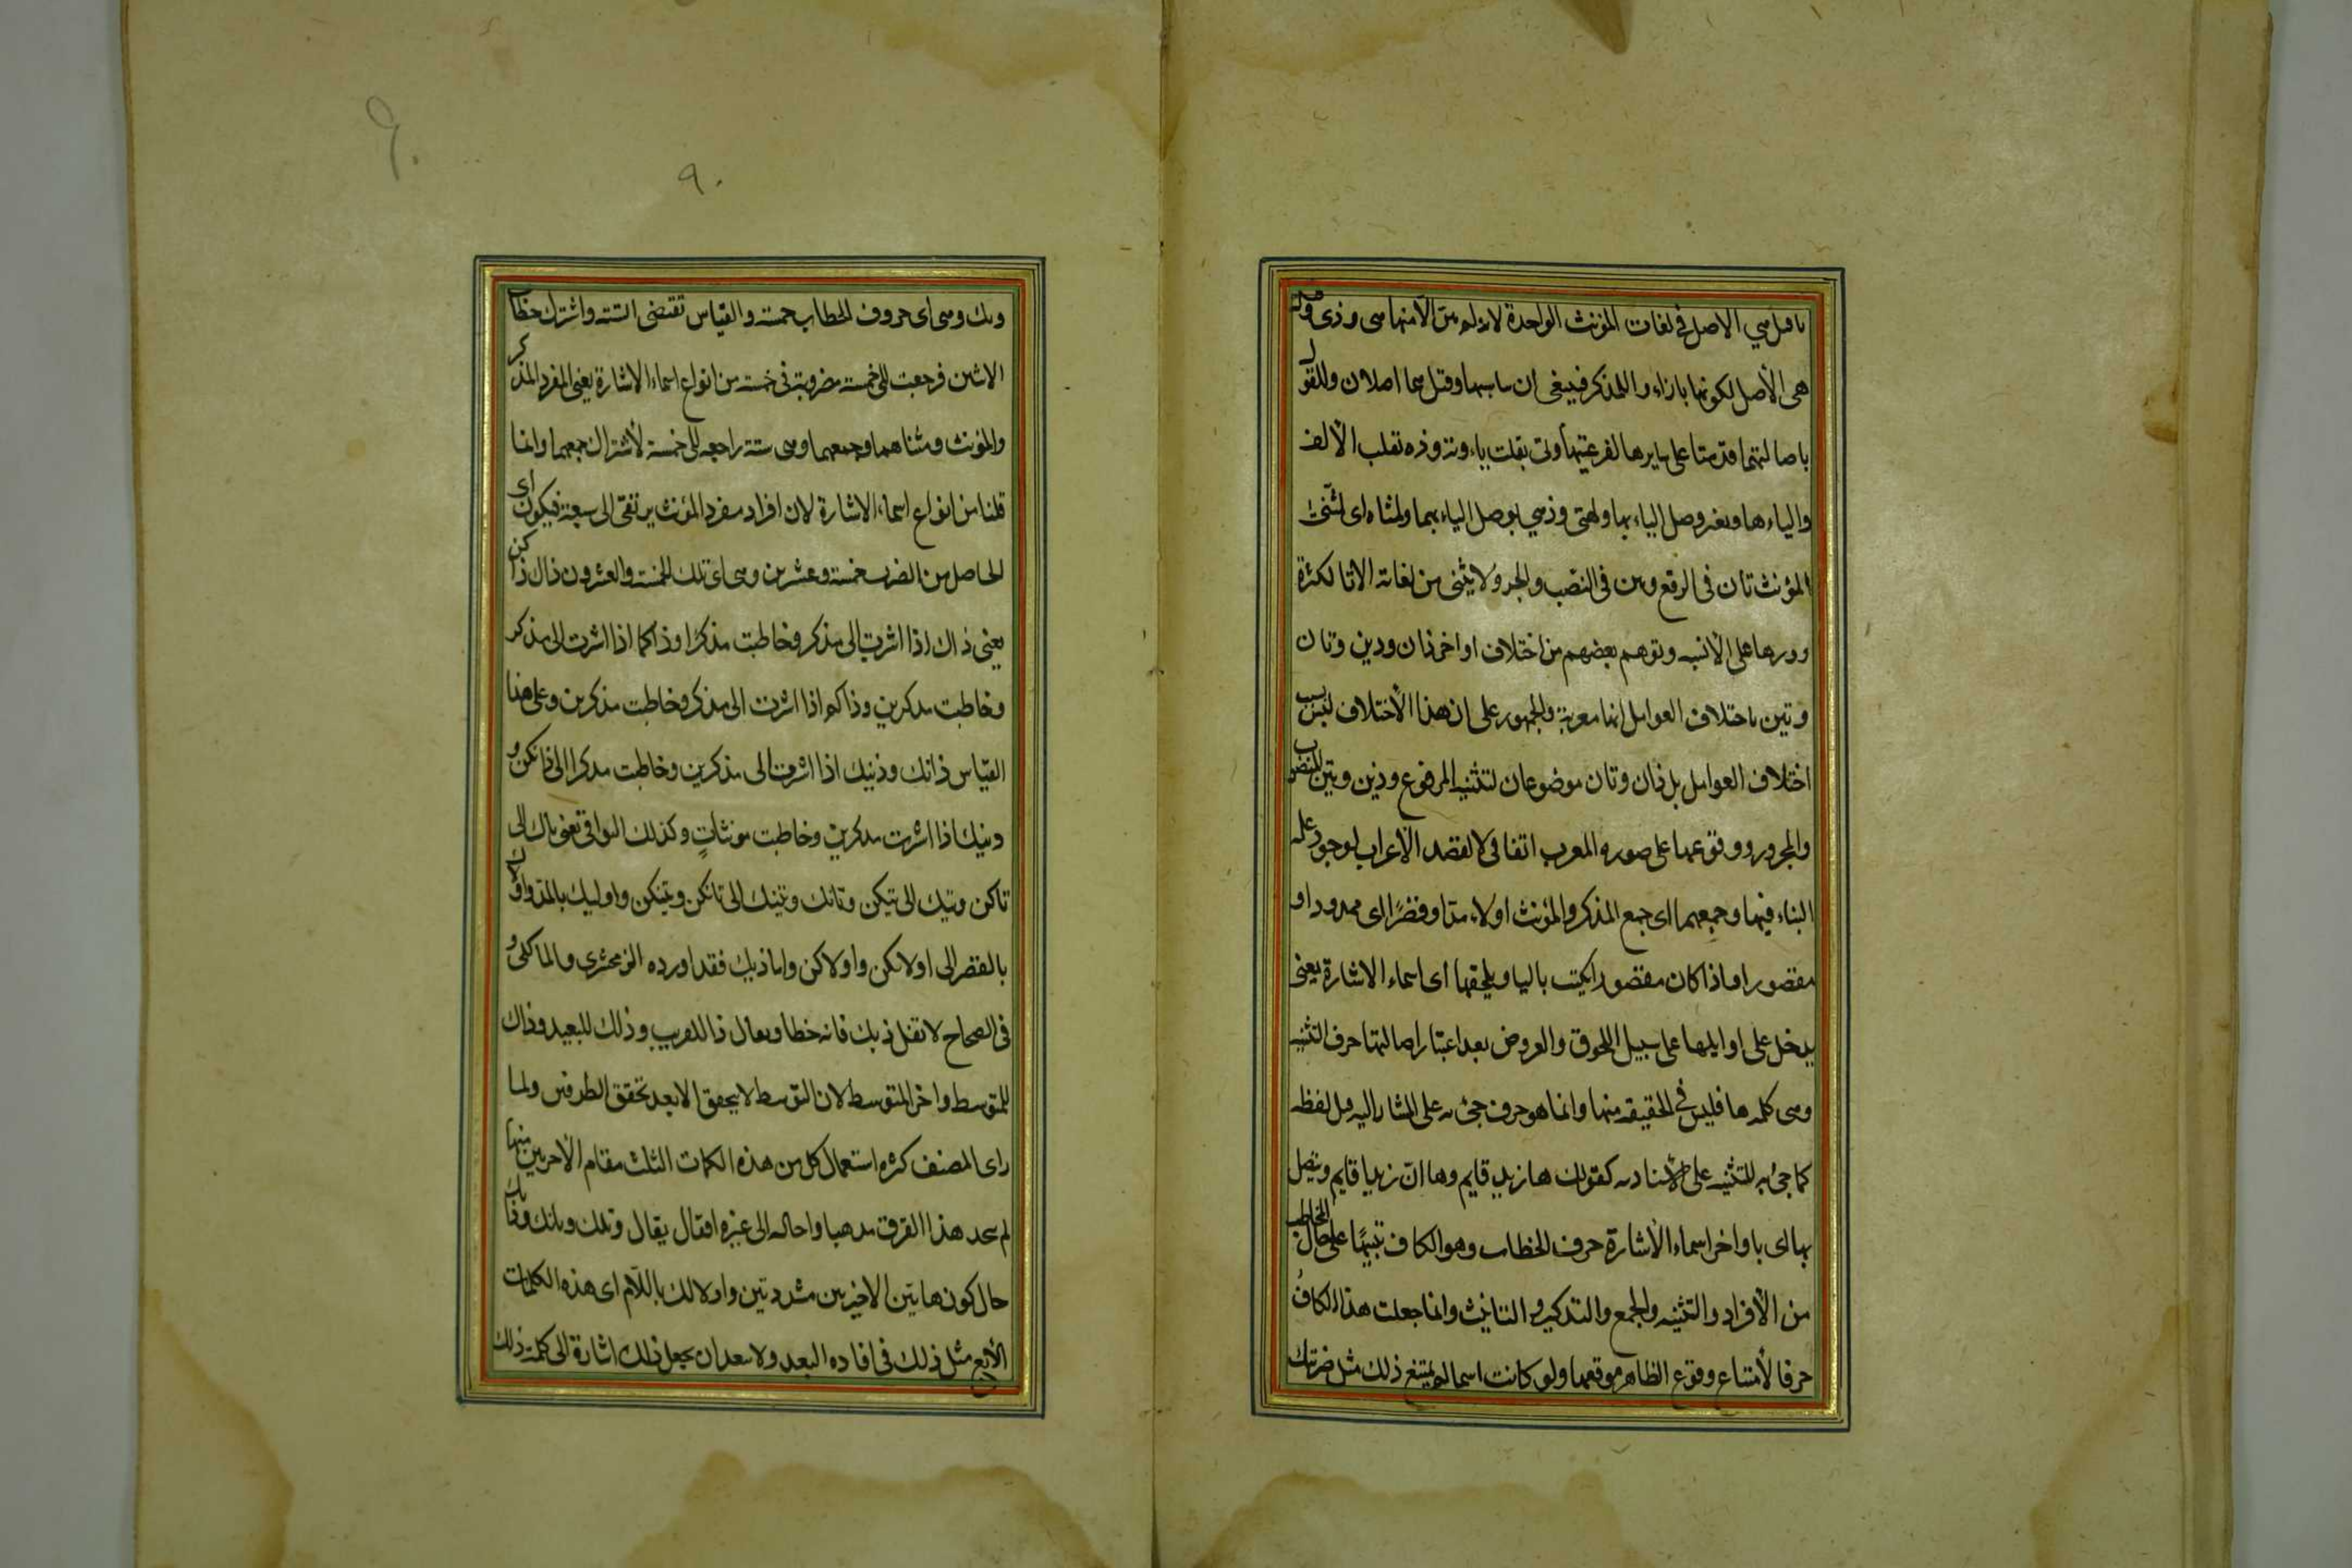 تا قيل هي الاصل في لغات المؤنث الواحدة لانه لم يثن الا منها هي وذى وقيل
هى الأصل لكونها بازاء ذا للمذكر فينبغى ان يناسبها وقيل هما اصلان وللقول
باصالتهما قدمتا على سايرها لفرعيتها وتى بقلب ياء وته وذه بقلب الألف
والياء هاء بغير وصل الياء بها وتهى وذهي بوصل الياء بهما ولمثناه اى لمثنى
المؤنث تان فى الرفع وتين فى النصب والجر ولا يثنى من لغاته الا تا لكثرة
دورها على الألسنه وتوهم بعضهم من اختلاف اواخر ذان وذين وتان
وتين باختلاف العوامل انها معربة والجمهور على ان هذا الأختلاف ليس بسبب
اختلاف العوامل بل ذان وتان موضوعان لتثنيه المرفوع وذين وتين للمنصوب
والمجرور ووقوعها على صوره المعرب اتفاقى لا لقصد الأعراب لوجود علة
البناء فيها وجمعهما اى جمع المذكر والمؤنث اولاء مدّا وقصرًا اى ممدودا او
مقصورا واذا كان مقصورا يكتب باليا ويلحقها اى اسماء الاشارة يعنى
يدخل على اوايلها على سبيل اللحوق والعروض بعد اعتبار اصالتها حرف التنبيه
وهى كلمه ها فليس في الحقيقه منها وانما هو حرف جئ به على المشار اليه قبل لفظه
كما جئ به للتنبيه على الأسناد به كقولك ها زيد قايم وها انّ زيدا قايم ويتصل
بها اى باواخر اسماء الأشارة حرف الخطاب وهو الكاف تنبيهًا على حال المخاطب
من الأفراد والتثنيه والجمع والتذكير والتانيث وانما جعلت هذا الكاف
حرفا لأمتناع وقوع الظاهر موقعها ولو كانت اسما لم يمتنع ذلك مثل ضربتك
٩٠
٩٠
وبك وهى اى حروف الخطاب خمسة والقياس تقتضى الستة واشترك خطاب
الاثنين فرجعت الى خمسة مضروبة فى خمسة من انواع اسماء الاشارة يعنى المفرد المذكر
والمؤنث ومثناهما وجمعهما وهى ستة راجعه الى خمسة لأشتراك جمعهما وانما
قلنا من انواع اسماء الاشارة لان افراد مفرد المؤنث يرتقى الى سبعة فيكون اى
الحاصل من الضرب خمسة وعشرين وهى اى تلك الخمسة والعشرون ذاك ذاكن
يعنى ذاك اذا اشرت الى مذكر وخاطبت مذكرًا وذاكما اذا اشرت الى مذكر
وخاطبت مذكرين وذاكم اذا اشرت الى مذكر وخاطبت مذكرين وعلى هذا
القياس ذانك وذينك اذا اشرت الى مذكرين وخاطبت مذكرا الى ذانكن و
ذينك اذا اشرت مذكرين وخاطبت مونثاتٍ وكذلك البواقى يعنى تاك الى
تاكن وتيك الى تيكن وتانك وتينك الى تانكن وتينكن واوليك بالمد واولاك
بالقصر الى اولائكن واولاكن واما ذيك فقد اورده الزمخشرى والمالكى و
فى الصحاح لا تقل ذيك فانه خطا ويقال ذا للقريب وذلك للبعيد وذاك
للمتوسط واخر المتوسط لان التوسط لا يتحقق الا بعد تحقق الطرفين ولما
راى المصنف كثره استعمال كل من هذه الكلمات الثلث مقام الأخريين منها
لم يتخذ هذا الفرق مذهبا واحاله الى غيره فقال يقال وتلك وتانك وذانك
حال كون هاتين الاخيرتين مشددتين واولالك باللام اى هذه الكلمات
الأربع مثل ذلك فى افاده البعد ولا يبعد ان يجعل ذلك اشارة الى كلمة ذلك